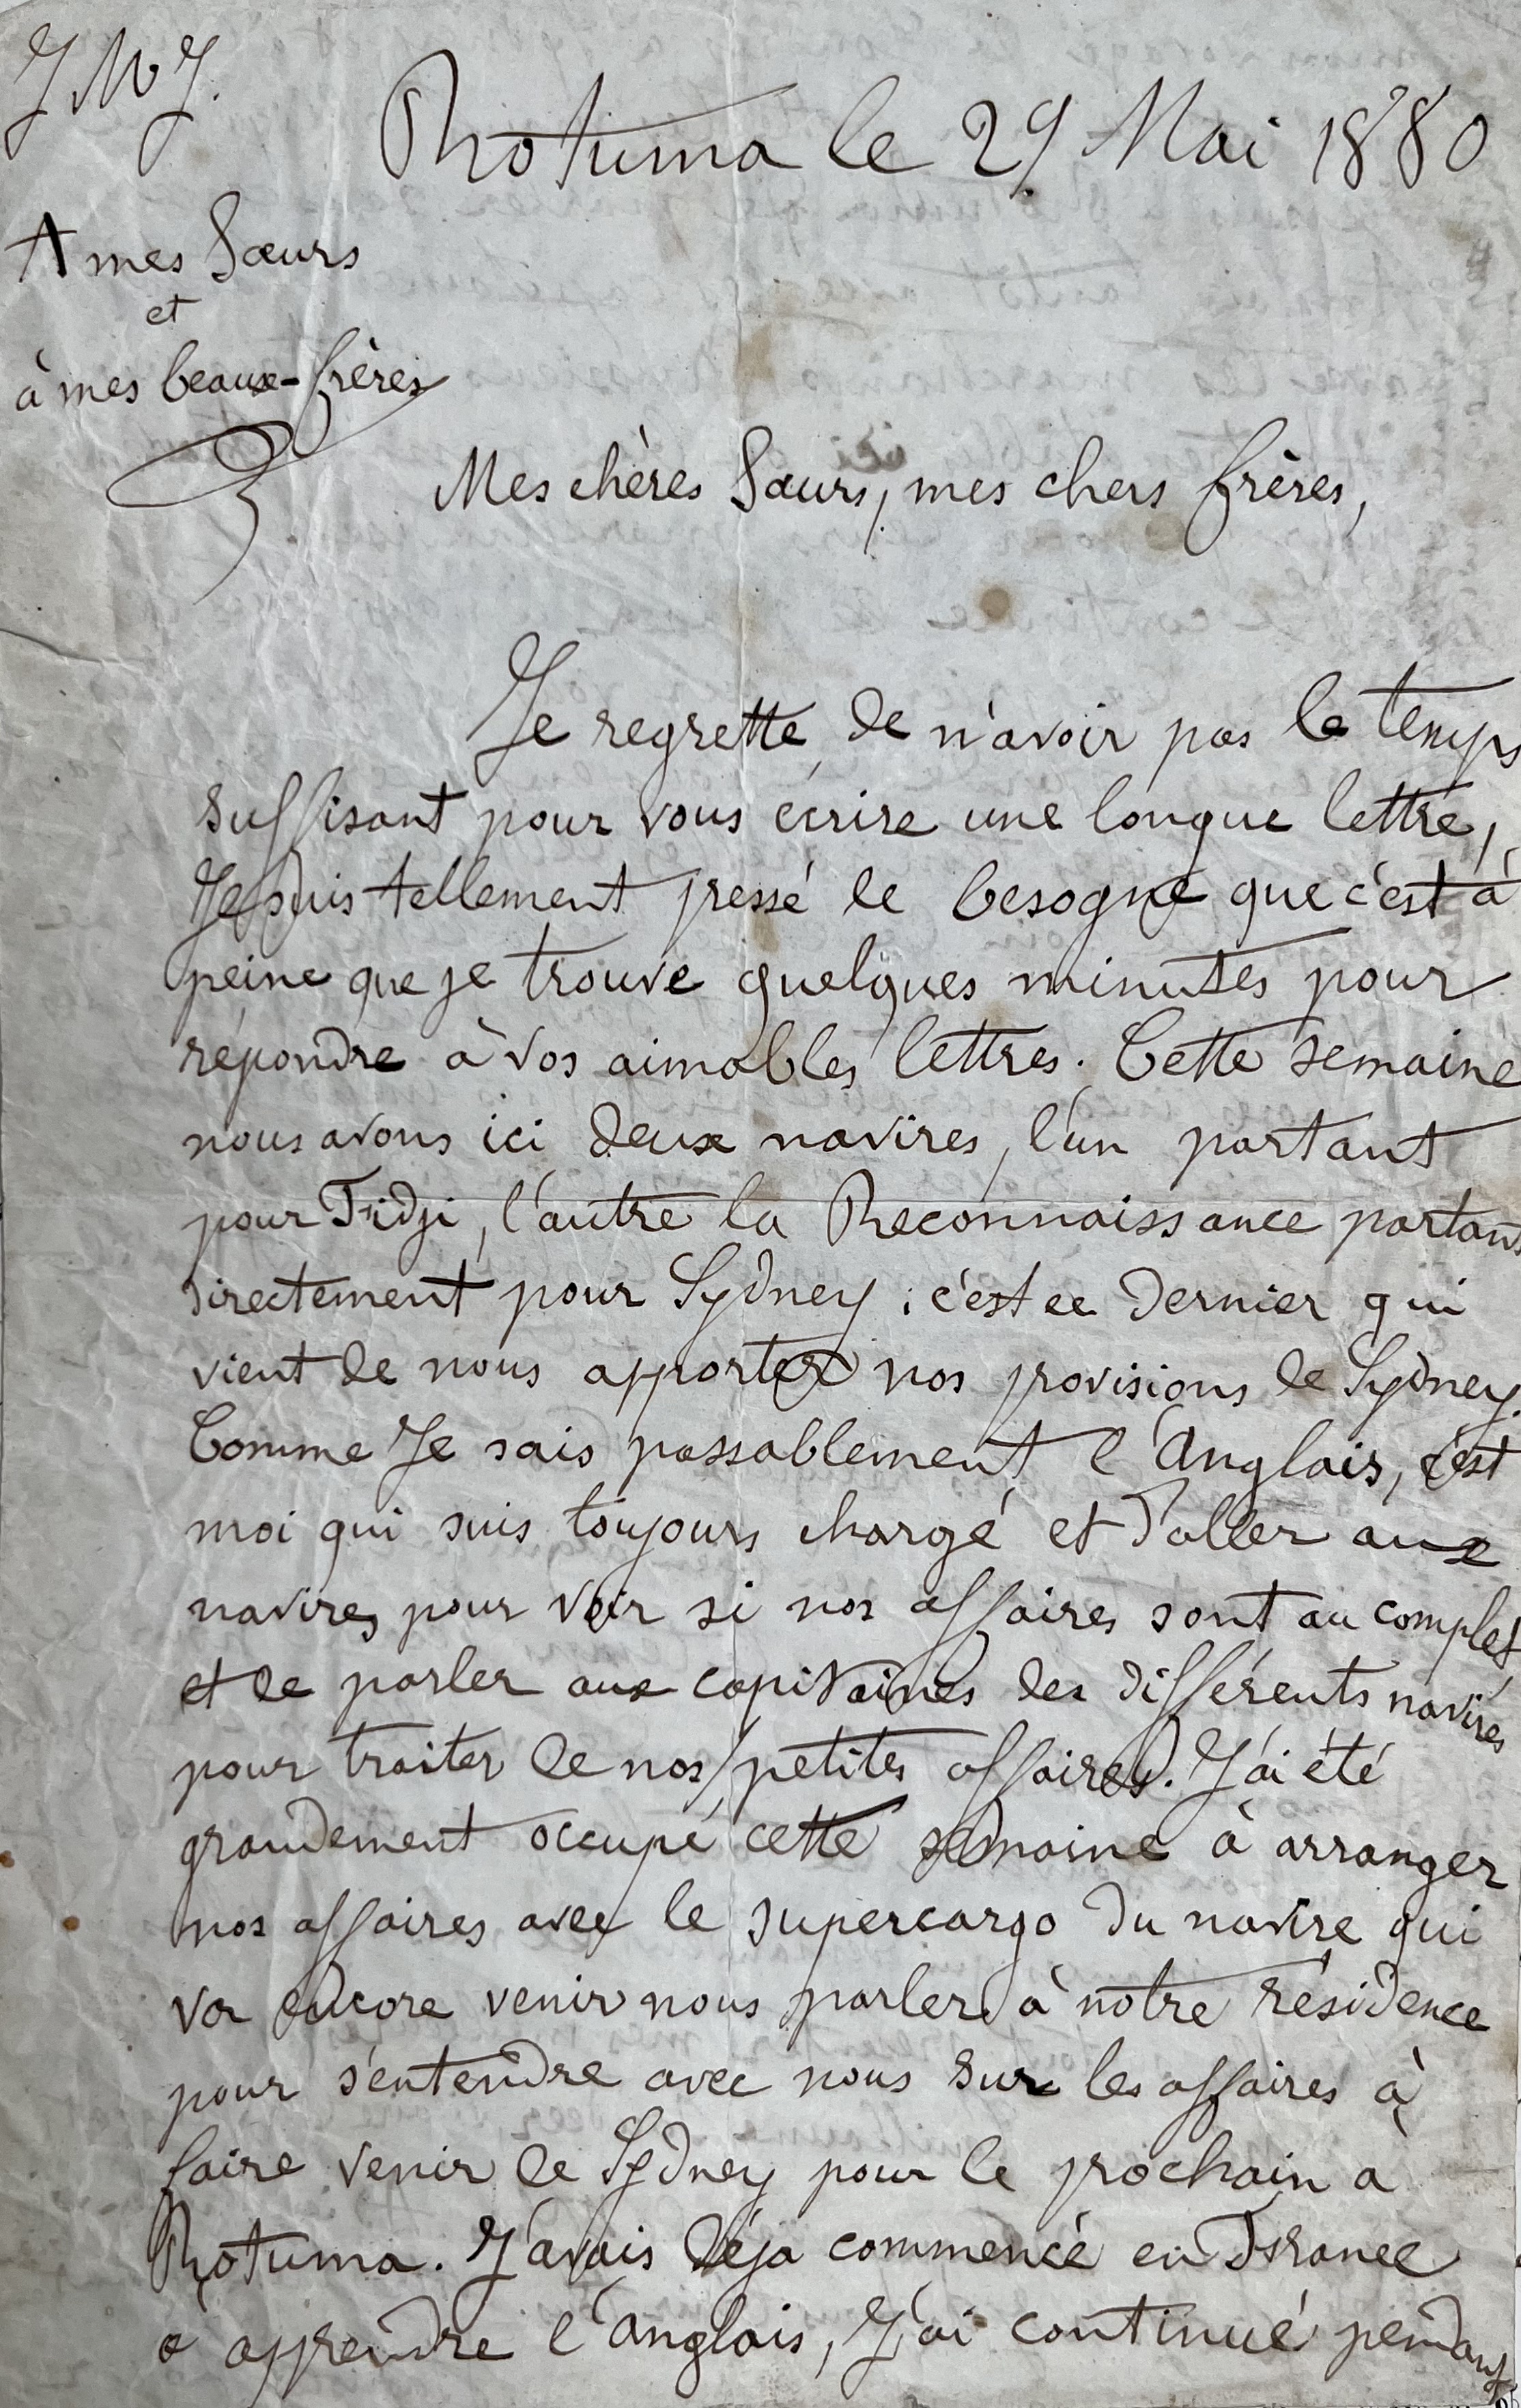 J M J.
Rotuma le 29 Mai 1880
A mes Sœurs
et
à mes beaux-frères
Mes chères Sœurs, mes chers frères,
Je regrette de n'avoir pas le temps
suffisant pour vous écrire une longue lettre,
Je suis tellement pressé de besogne que c'est à
peine que je trouve quelques minutes pour
répondre à vos aimables lettres. Cette semaine
nous avons ici deux navires, l'un partant
pour Fidji, l'autre la Reconnaissance partant
directement pour Sydney ; c'est ce dernier qui
vient de nous apporter nos provisions de Sydney.
Comme Je sais passablement l'Anglais, c'est
moi qui suis toujours chargé et d'aller aux
navires pour voir si nos affaires sont au complet
et de parler aux capitaines des différents navires
pour traiter de nos petites affaires. J'ai été
grandement occupé cette semaine à arranger
nos affaires avec le supercargo du navire qui
va encore venir nous parler à notre résidence
pour s'entendre avec nous sur les affaires à
faire venir de Sydney pour le prochain à
Rotuma. J'avais déja commencé en France
a apprendre l'anglais, J'ai continué pendant